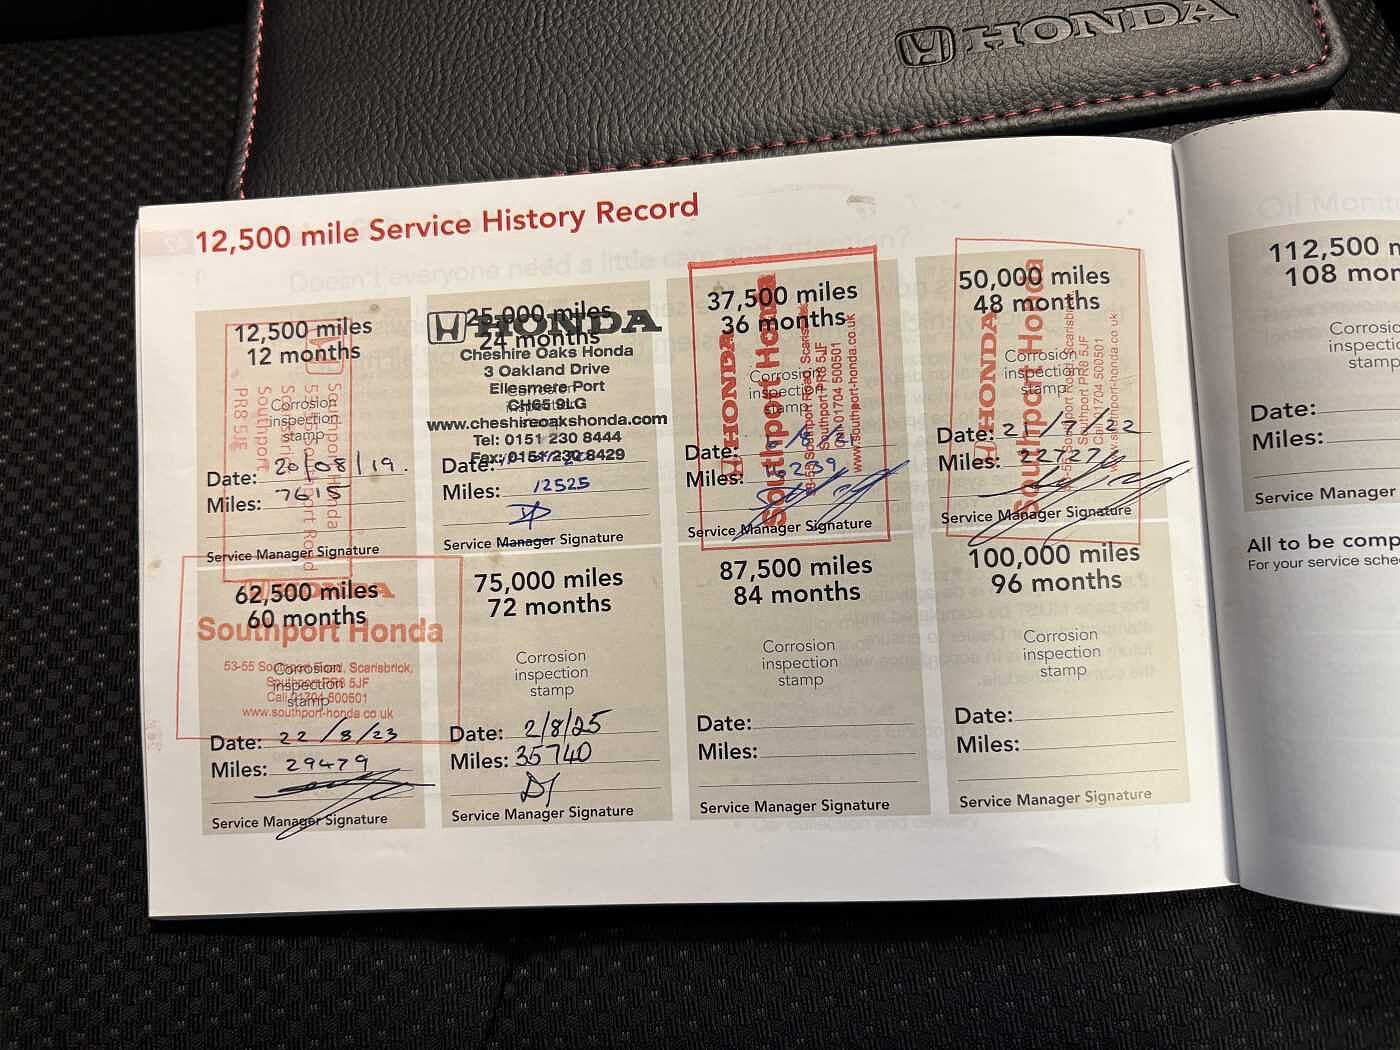 HONDA
12,500 mile Service History Record
12,500 miles
12 months
Corrosion
inspection
stamp
Southport Honda
Southport
PR8 5JF
Date: 20/08/19.
Miles: 7615
Service Manager Signature
25,000 miles
24 months
HONDA
Cheshire Oaks Honda
3 Oakland Drive
Ellesmere Port
CH65 9LG
www.cheshireoakshonda.com
Tel: 0151 230 8444
Fax: 0151 230 8429
Date:
Miles: 12525
Service Manager Signature
37,500 miles
36 months
Corrosion
inspection
stamp
HONDA
Southport Honda
53-55 Southport Road, Scarisbrick,
Southport PR8 5JF
Call 01704 500501
www.southport-honda.co.uk
Date:
Miles: 16239
Service Manager Signature
50,000 miles
48 months
Corrosion
inspection
stamp
HONDA
Southport Honda
53-55 Southport Road, Scarisbrick,
Southport PR8 5JF
Call 01704 500501
www.southport-honda.co.uk
Date: 21/7/22
Miles: 22727
Service Manager Signature
62,500 miles
60 months
HONDA
Southport Honda
Corrosion
inspection
stamp
53-55 Southport Road, Scarisbrick,
Southport PR8 5JF
Call 01704 500501
www.southport-honda.co.uk
Date: 22/8/23
Miles: 29479
Service Manager Signature
75,000 miles
72 months
Corrosion
inspection
stamp
Date: 2/8/25
Miles: 35740
Service Manager Signature
87,500 miles
84 months
Corrosion
inspection
stamp
Date:
Miles:
Service Manager Signature
100,000 miles
96 months
Corrosion
inspection
stamp
Date:
Miles:
Service Manager Signature
Oil Monit
112,500 m
108 mon
Corrosio
inspectio
stamp
Date:
Miles:
Service Manager
All to be comp
For your service sche